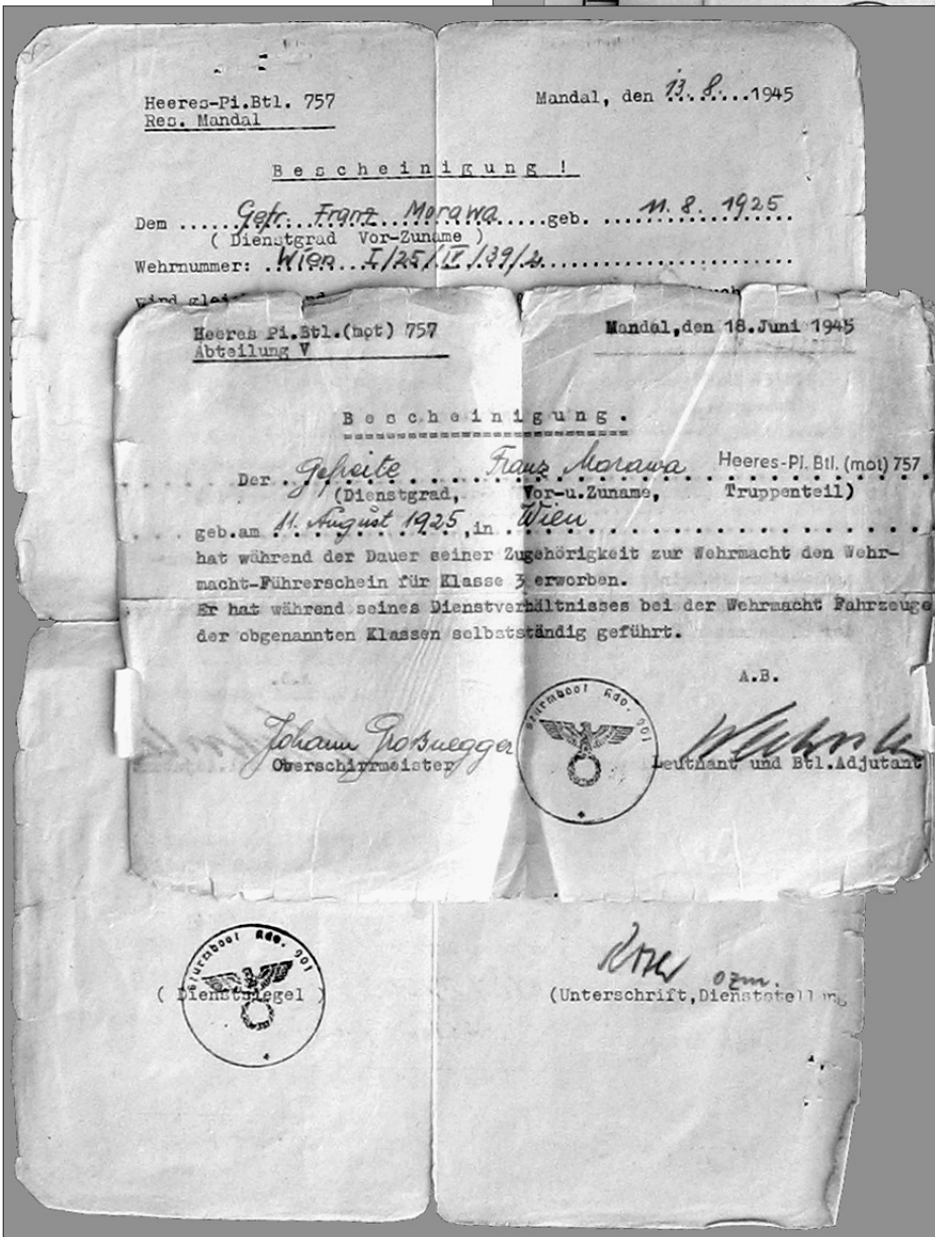 Heeres-Pi.Btl. 757
Res. Mandal
Mandal, den 13. 8. ...1945
Bescheinigung !
Dem .... Gefr. Franz Morawa .....geb. ... 11. 8. 1925
( Dienstgrad Vor-Zuname )
Wehrnummer: .Wien I/25/IV/39/2.........................
wird
Heeres Pi.Btl.(mot) 757
Abteilung V
Mandal,den 18.Juni 1945
Bescheinigung.
Der Gefreite Franz Morawa Heeres-Pi. Btl. (mot) 757
(Dienstgrad, Vor-u.Zuname, Truppenteil)
geb.am 11. August 1925,in Wien
hat während der Dauer seiner Zugehörigkeit zur Wehrmacht den Wehr-
macht-Führerschein für Klasse 3 erworben.
Er hat während seines Dienstverhältnisses bei der Wehrmacht Fahrzeuge
der obgenannten Klassen selbstständig geführt.
A.B.
Johann Großnegger
Oberschirrmeister
Sturmboot Kdo. 901
Leutnant und Btl.Adjutant
Sturmboot Kdo. 901
( Dienstsiegel )
ozm.
(Unterschrift,Dienststellung